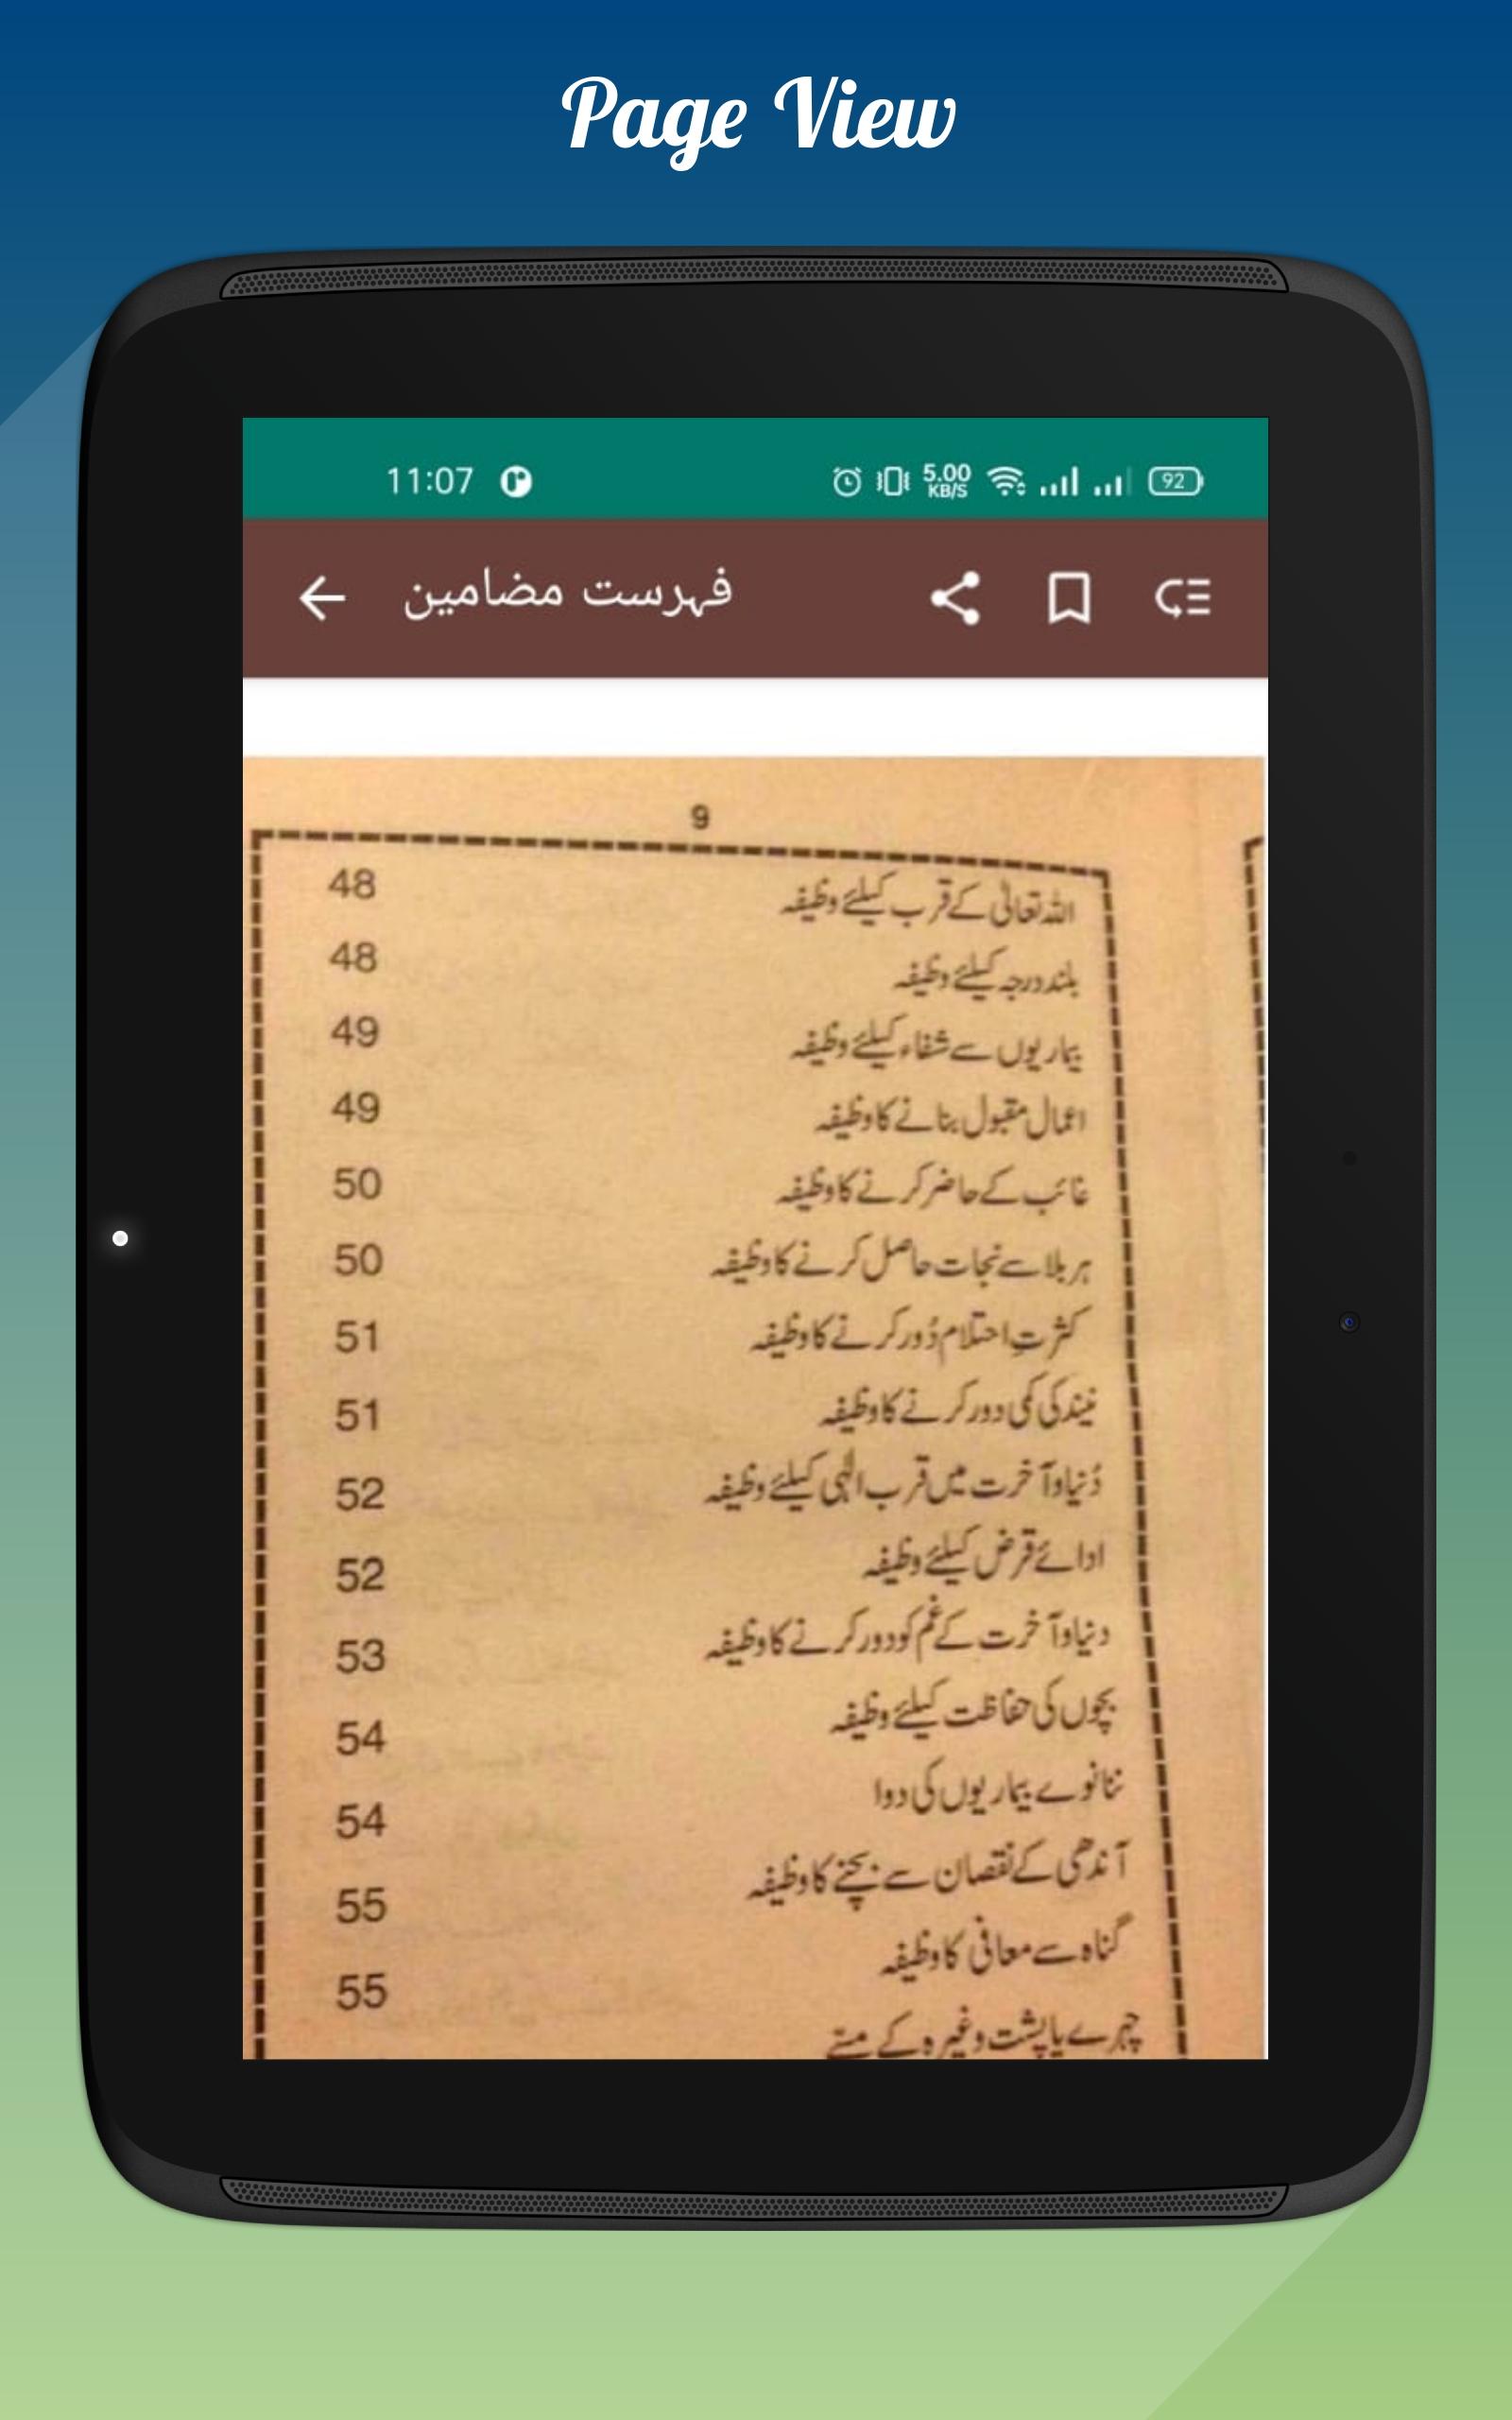 Page View
11:07 5.00 KB/S 92
فہرست مضامین
9
اللہ تعالیٰ کے قرب کیلئے وظیفہ 48
بلند درجہ کیلئے وظیفہ 48
بیماریوں سے شفاء کیلئے وظیفہ 49
اعمال مقبول بنانے کا وظیفہ 49
غائب کے حاضر کرنے کا وظیفہ 50
ہر بلا سے نجات حاصل کرنے کا وظیفہ 50
کثرتِ احتلام دُور کرنے کا وظیفہ 51
نیند کی کمی دور کرنے کا وظیفہ 51
دُنیا و آخرت میں قرب الٰہی کیلئے وظیفہ 52
ادائے قرض کیلئے وظیفہ 52
دنیا و آخرت کے غم کو دور کرنے کا وظیفہ 53
بچوں کی حفاظت کیلئے وظیفہ 54
ننانوے بیماریوں کی دوا 54
آندھی کے نقصان سے بچنے کا وظیفہ 55
گناہ سے معافی کا وظیفہ 55
چہرے یا پشت وغیرہ کے مسّے